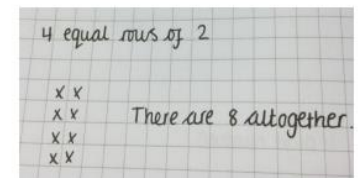 4 equal rows of 2
x x
x x
There are 8 altogether.
x x
x x